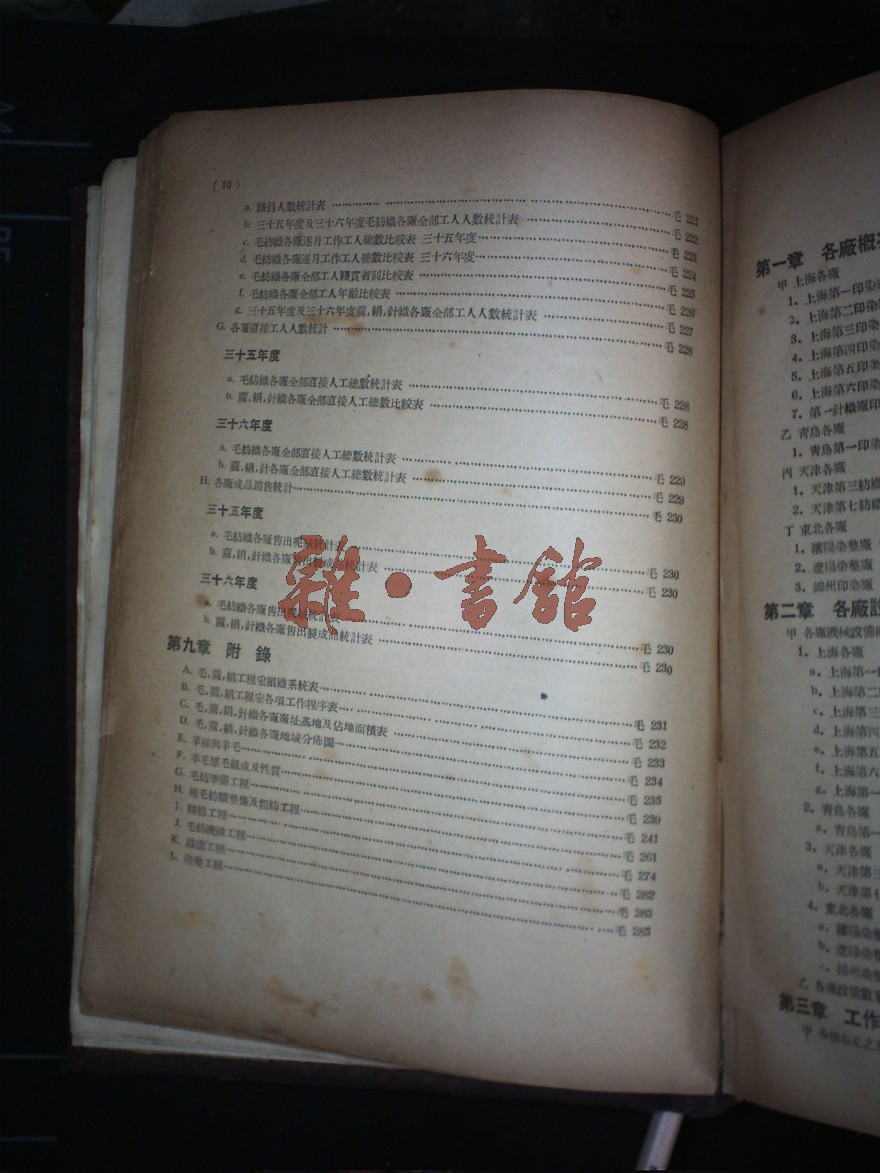 ( 10 )
a. 職員人數統計表 毛 221
b. 三十五年度及三十六年度毛紡織各廠全部工人人數統計表 毛 222
c. 毛紡織各廠逐月工作工人總數比較表 三十五年度 毛 223
d. 毛紡織各廠逐月工作工人總數比較表 三十六年度 毛 224
e. 毛紡織各廠全部工人籍貫省別比較表 毛 225
f. 毛紡織各廠全部工人年齡比較表 毛 226
g. 三十五年度及三十六年度蔴,絹,針織各廠全部工人人數統計表 毛 227
G. 各廠直接工人人數統計 毛 228
三十五年度
a. 毛紡織各廠全部直接人工總數統計表 毛 228
b. 蔴,絹,針織各廠全部直接人工總數比較表 毛 228
三十六年度
a. 毛紡織各廠全部直接人工總數統計表 毛 229
b. 蔴,絹,針各廠全部直接人工總數統計表 毛 229
H. 各廠成品銷售統計 毛 230
三十五年度
a. 毛紡織各廠售出呢絨統計表 毛 230
b. 蔴,絹,針織各廠售出製成品統計表 毛 230
三十六年度
a. 毛紡織各廠售出呢絨統計表 毛 230
b. 蔴,絹,針織各廠售出製成品統計表 毛 230
第九章 附錄
A. 毛,蔴,絹工程室組織系統表 毛 231
B. 毛,蔴,絹工程室各項工作程序表 毛 232
C. 毛,蔴,絹,針織各廠廠址基地及佔地面積表 毛 233
D. 毛,蔴,絹,針織各廠地域分佈圖 毛 234
E. 羊種與羊毛 毛 235
F. 羊毛原毛組成及性質 毛 239
G. 毛紡準備工程 毛 241
H. 梳毛紡績整養及粗紡工程 毛 261
I. 精紡工程 毛 274
J. 毛紡機織工程 毛 282
K. 織造工程 毛 283
L. 染整工程 毛 285
雜·書館
第一章 各廠概
甲 上海各廠
1. 上海第一印染
2. 上海第二印染
3. 上海第三印染
4. 上海第四印染
5. 上海第五印染
6. 上海第六印染
7. 第一針織廠印
乙 青島各廠
1. 青島第一印染
丙 天津各廠
1. 天津第三紡織
2. 天津第七紡織
丁 東北各廠
1. 瀋陽染整廠
2. 遼陽染整廠
3. 錦州印染廠
第二章 各廠設
甲 各廠機械設備
1. 上海各廠
a. 上海第一
b. 上海第二
c. 上海第三
d. 上海第四
e. 上海第五
f. 上海第六
g. 上海第一
2. 青島各廠
a. 青島第一
3. 天津各廠
a. 天津第三
b. 天津第七
4. 東北各廠
a. 瀋陽染整
b. 遼陽染整
c. 錦州染整
乙 各廠設備數
第三章 工作